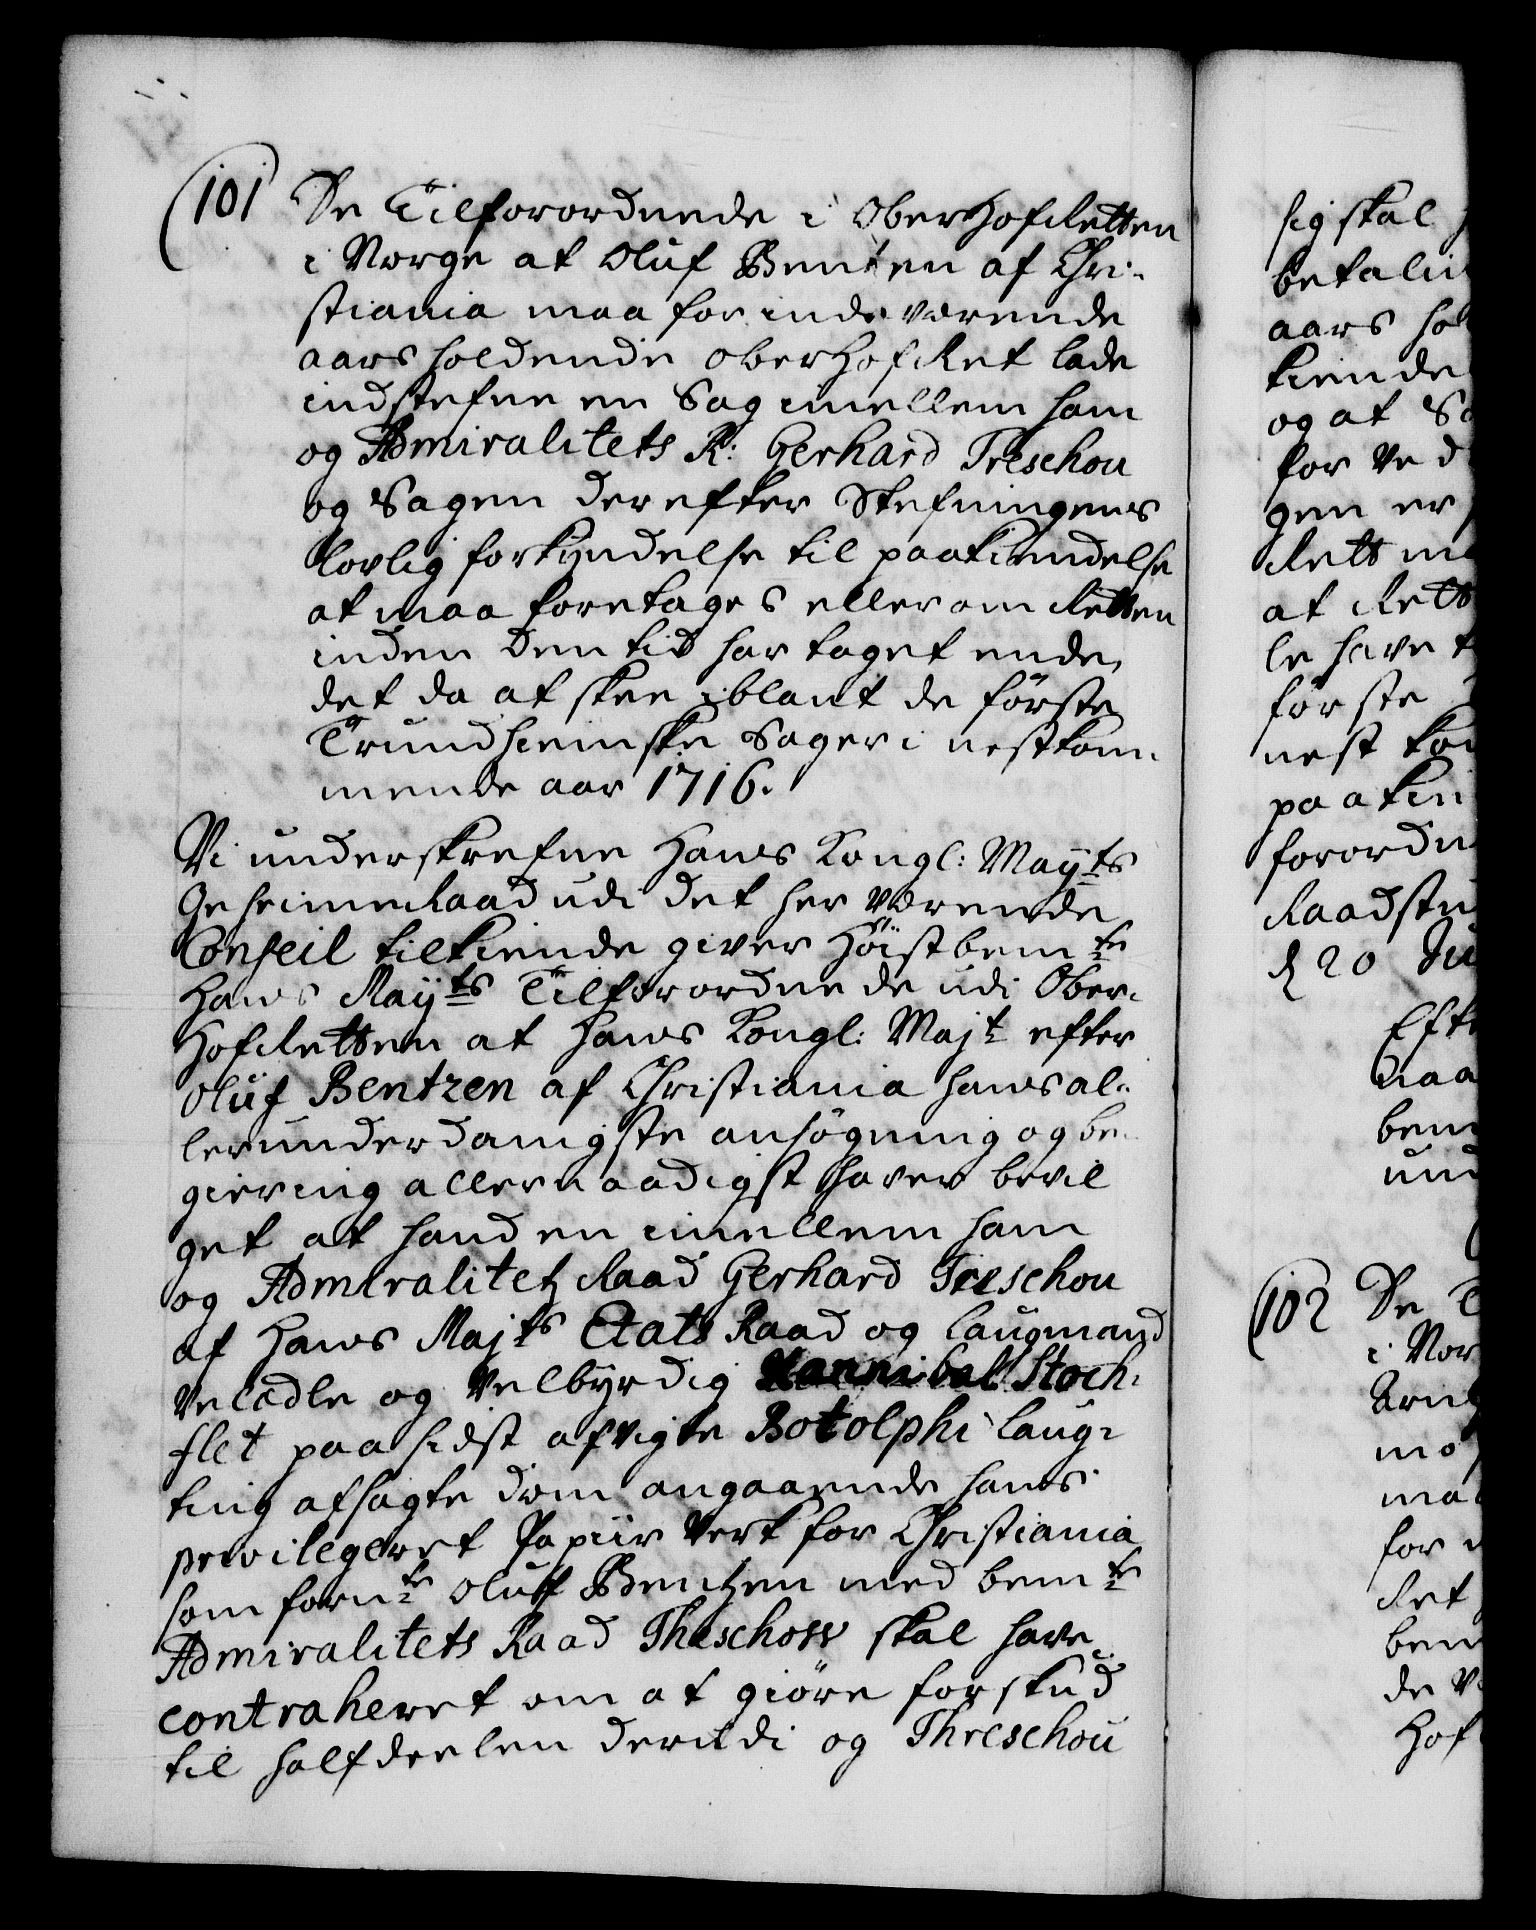 101 De Tilforordnede i OberHofRetten
i Norge at Oluf Bentzen af Chri-
stiania maa for indeværende
aars holdende OberHofRet lade
indstefne en Sag imellem ham
og Admiralitets R: Gerhard Treschou
og Sagen derefter Stefningens
lovlig forkyndelse til paakiendelse
at maa foretages eller om Retten
inden den tid har taget ende,
det da at skee iblant de förste
Trundhiemske Sager i nestkom-
mende aar 1716.
Vi underskrefne Hans Kongl: Mayts
Geheimeraad udi det her værende
Conseil tilkiende giver Höistbemte
Hans Mayts Tilforordnede udi Ober-
HofRetten at Hans Kongl: Majt efter
Oluf Bentzen af Christiania hans al-
lerunderdanigste ansögning og be-
giering allernaadigst haver bevil
get at hand en imellem ham
og Admiralitetz Raad Gerhard Treschou
af Hans Majts Etats Raad og Laugmand
Velædle og Velbÿrdig Hannibal Stoch-
flet paa sidst afvigte Botolphi Laug-
ting afsagte dom angaaende hans
privilegeret Papiir Verk for Christiania
som fornte Oluf Bentzen med bemte
Admiralitets Raad Threschow skal have
contraheret om at giöre forskud
til halfdeelen derudi og Threschou
sig skal
betalin
aars hol
kiende
og at Sa
for ved
gen er
Retts m
at Rett
le have t
förste
nest kom
paakin
forordn
Raadstu
d 20 Ju
Eft
naa
bem
und
102 De T
i Nor
Arn
mo
ma
for
Ret
bem
de V
Hof